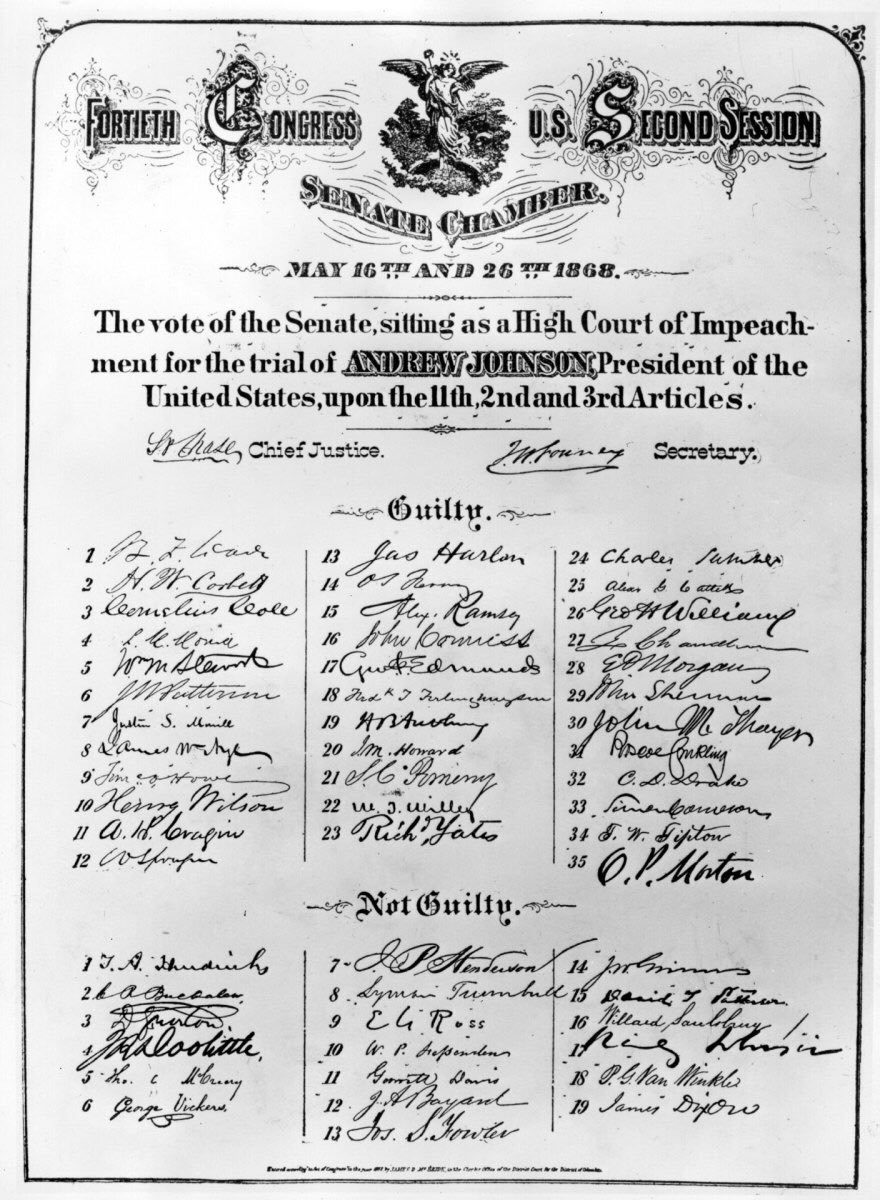 FORTIETH CONGRESS U.S. SECOND SESSION
SENATE CHAMBER.
MAY 16TH AND 26TH 1868.
The vote of the Senate, sitting as a High Court of Impeach-
ment for the trial of ANDREW JOHNSON, President of the
United States, upon the 11th, 2nd and 3rd Articles.
S P Chase, Chief Justice.
J.W. Forney Secretary.
Guilty.
1 B. F. Wade
2 H. W. Corbett
3 Cornelius Cole
4 L. M. Morrill
5 Wm M Stewart
6 J W Patterson
7 Justin S. Morrill
8 James W Nye
9 T. O. Howe
10 Henry Wilson
11 A. H. Cragin
12 W Sprague
13 Jas Harlan
14 O S Ferry
15 Alex. Ramsey
16 John Conness
17 Geo F. Edmunds
18 Fredk T Frelinghuysen
19 H B Anthony
20 J. M. Howard
21 S. C. Pomeroy
22 W. T. Willey
23 Richd Yates
24 Charles Sumner
25 Alex G Cattell
26 Geo H Williams
27 Z Chandler
28 E. D. Morgan
29 John Sherman
30 John M Thayer
31 Roscoe Conkling
32 C. D. Drake
33 Simon Cameron
34 T. W. Tipton
35 O. P. Morton
Not Guilty.
1 T. A. Hendricks
2 C R Buckalew
3 D Norton
4 J R Doolittle,
5 Tho. C McCreery
6 George Vickers
7 J B Henderson
8 Lyman Trumbull
9 E G Ross
10 W. P. Fessenden
11 Garrett Davis
12 J. A Bayard
13 Jos. S. Fowler
14 J W Grimes
15 David T Patterson
16 Willard Saulsbury
17 Reverdy Johnson
18 P. G. Van Winkle
19 James Dixon
Entered according to Act of Congress in the year 1868 by JAMES D. McBRIDE, in the Clerks Office of the District Court for the District of Columbia.